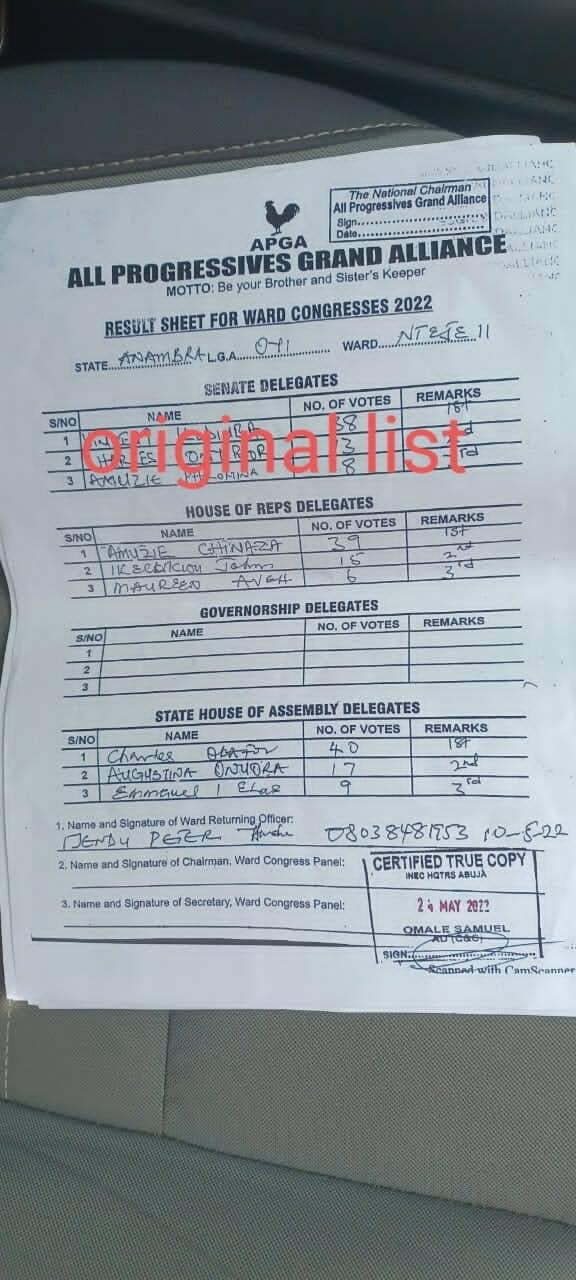 The National Chairman
All Progressives Grand Alliance
Sign
Date
APGA
ALL PROGRESSIVES GRAND ALLIANCE
MOTTO: Be your Brother and Sister's Keeper
RESULT SHEET FOR WARD CONGRESSES 2022
STATE ANAMBRA L.G.A. OYI WARD NTEJE 11
SENATE DELEGATES
S/NO NAME NO. OF VOTES REMARKS
1 38 1st
original list
2 13
3 AMUZIE PHILOMINA 8 3rd
HOUSE OF REPS DELEGATES
S/NO NAME NO. OF VOTES REMARKS
1 AMUZIE CHINAZA 39 1st
2 John 15 2nd
3 MAUREEN 6 3rd
GOVERNORSHIP DELEGATES
S/NO NAME NO. OF VOTES REMARKS
1
2
3
STATE HOUSE OF ASSEMBLY DELEGATES
S/NO NAME NO. OF VOTES REMARKS
1 Charles 40 1st
2 AUGUSTINA ONUORA 17 2nd
3 Emmanuel 9 3rd
1. Name and Signature of Ward Returning Officer:
PETER 08038481953 10-5-22
2. Name and Signature of Chairman, Ward Congress Panel:
3. Name and Signature of Secretary, Ward Congress Panel:
CERTIFIED TRUE COPY
INEC HQTRS ABUJA
MAY 2022
OMALE SAMUEL
AO (C&C)
SIGN
Scanned with CamScanner